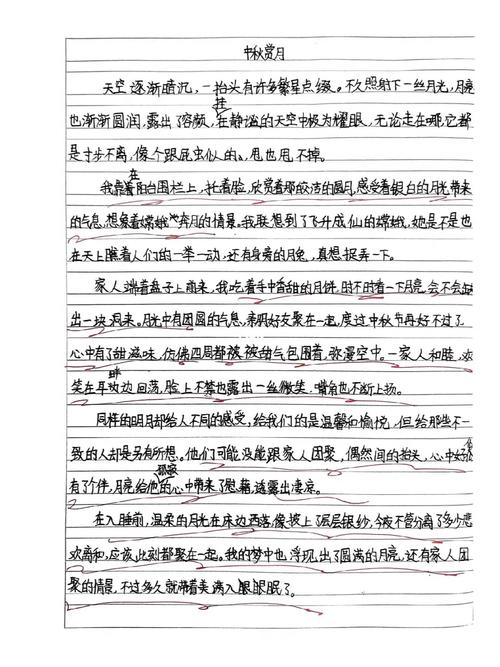 中秋赏月
天空逐渐暗沉,一抬头有许多繁星点缀。不久照射下一丝月光,月亮
挂
也渐渐圆润,露出了容颜,在静谧的天空中极为耀眼,无论走在哪,它都
是寸步不离,像个跟屁虫似的。,甩也甩不掉。
在
我靠着阳台围栏上,托着脸,欣赏着那皎洁的圆月,感受着银白的月光带来
的气息,想象着嫦娥奔月的情景。我联想到了飞升成仙的嫦娥,她是不是也
在天上瞧着人们的一举一动,还有身旁的月兔,真想捉弄一下。
家人端着盘子上前来,我吃着手中香甜的月饼,时不时看一下月亮,会不会缺
出一块洞来。月光中有团圆的气息,亲朋好友聚在一起,度过中秋节再好不过了
心中有了甜滋味,仿佛四周都被被的气包围着,弥漫空中。一家人和睦,欢
笑在耳边回荡,脸上不禁也露出一丝微笑,嘴角也不断上扬。
同样的明月却给人不同的感受,给我们的是温馨和愉悦,但给那些不一
致的人却是另有所想。他们可能没能跟家人团聚,偶然间的抬头,心中好似
孤寂
有了个伴,月亮给他的心中带来了慰藉,透露出凄凉。
在入睡前,温柔的月光在床边洒落,像披上了层层银纱,今夜不管分离了多少悲
欢离和,应该此刻都聚在一起。我的梦中也浮现出了圆满的月亮,还有家人团
聚的情景,不过多久就带着美满入眠了。